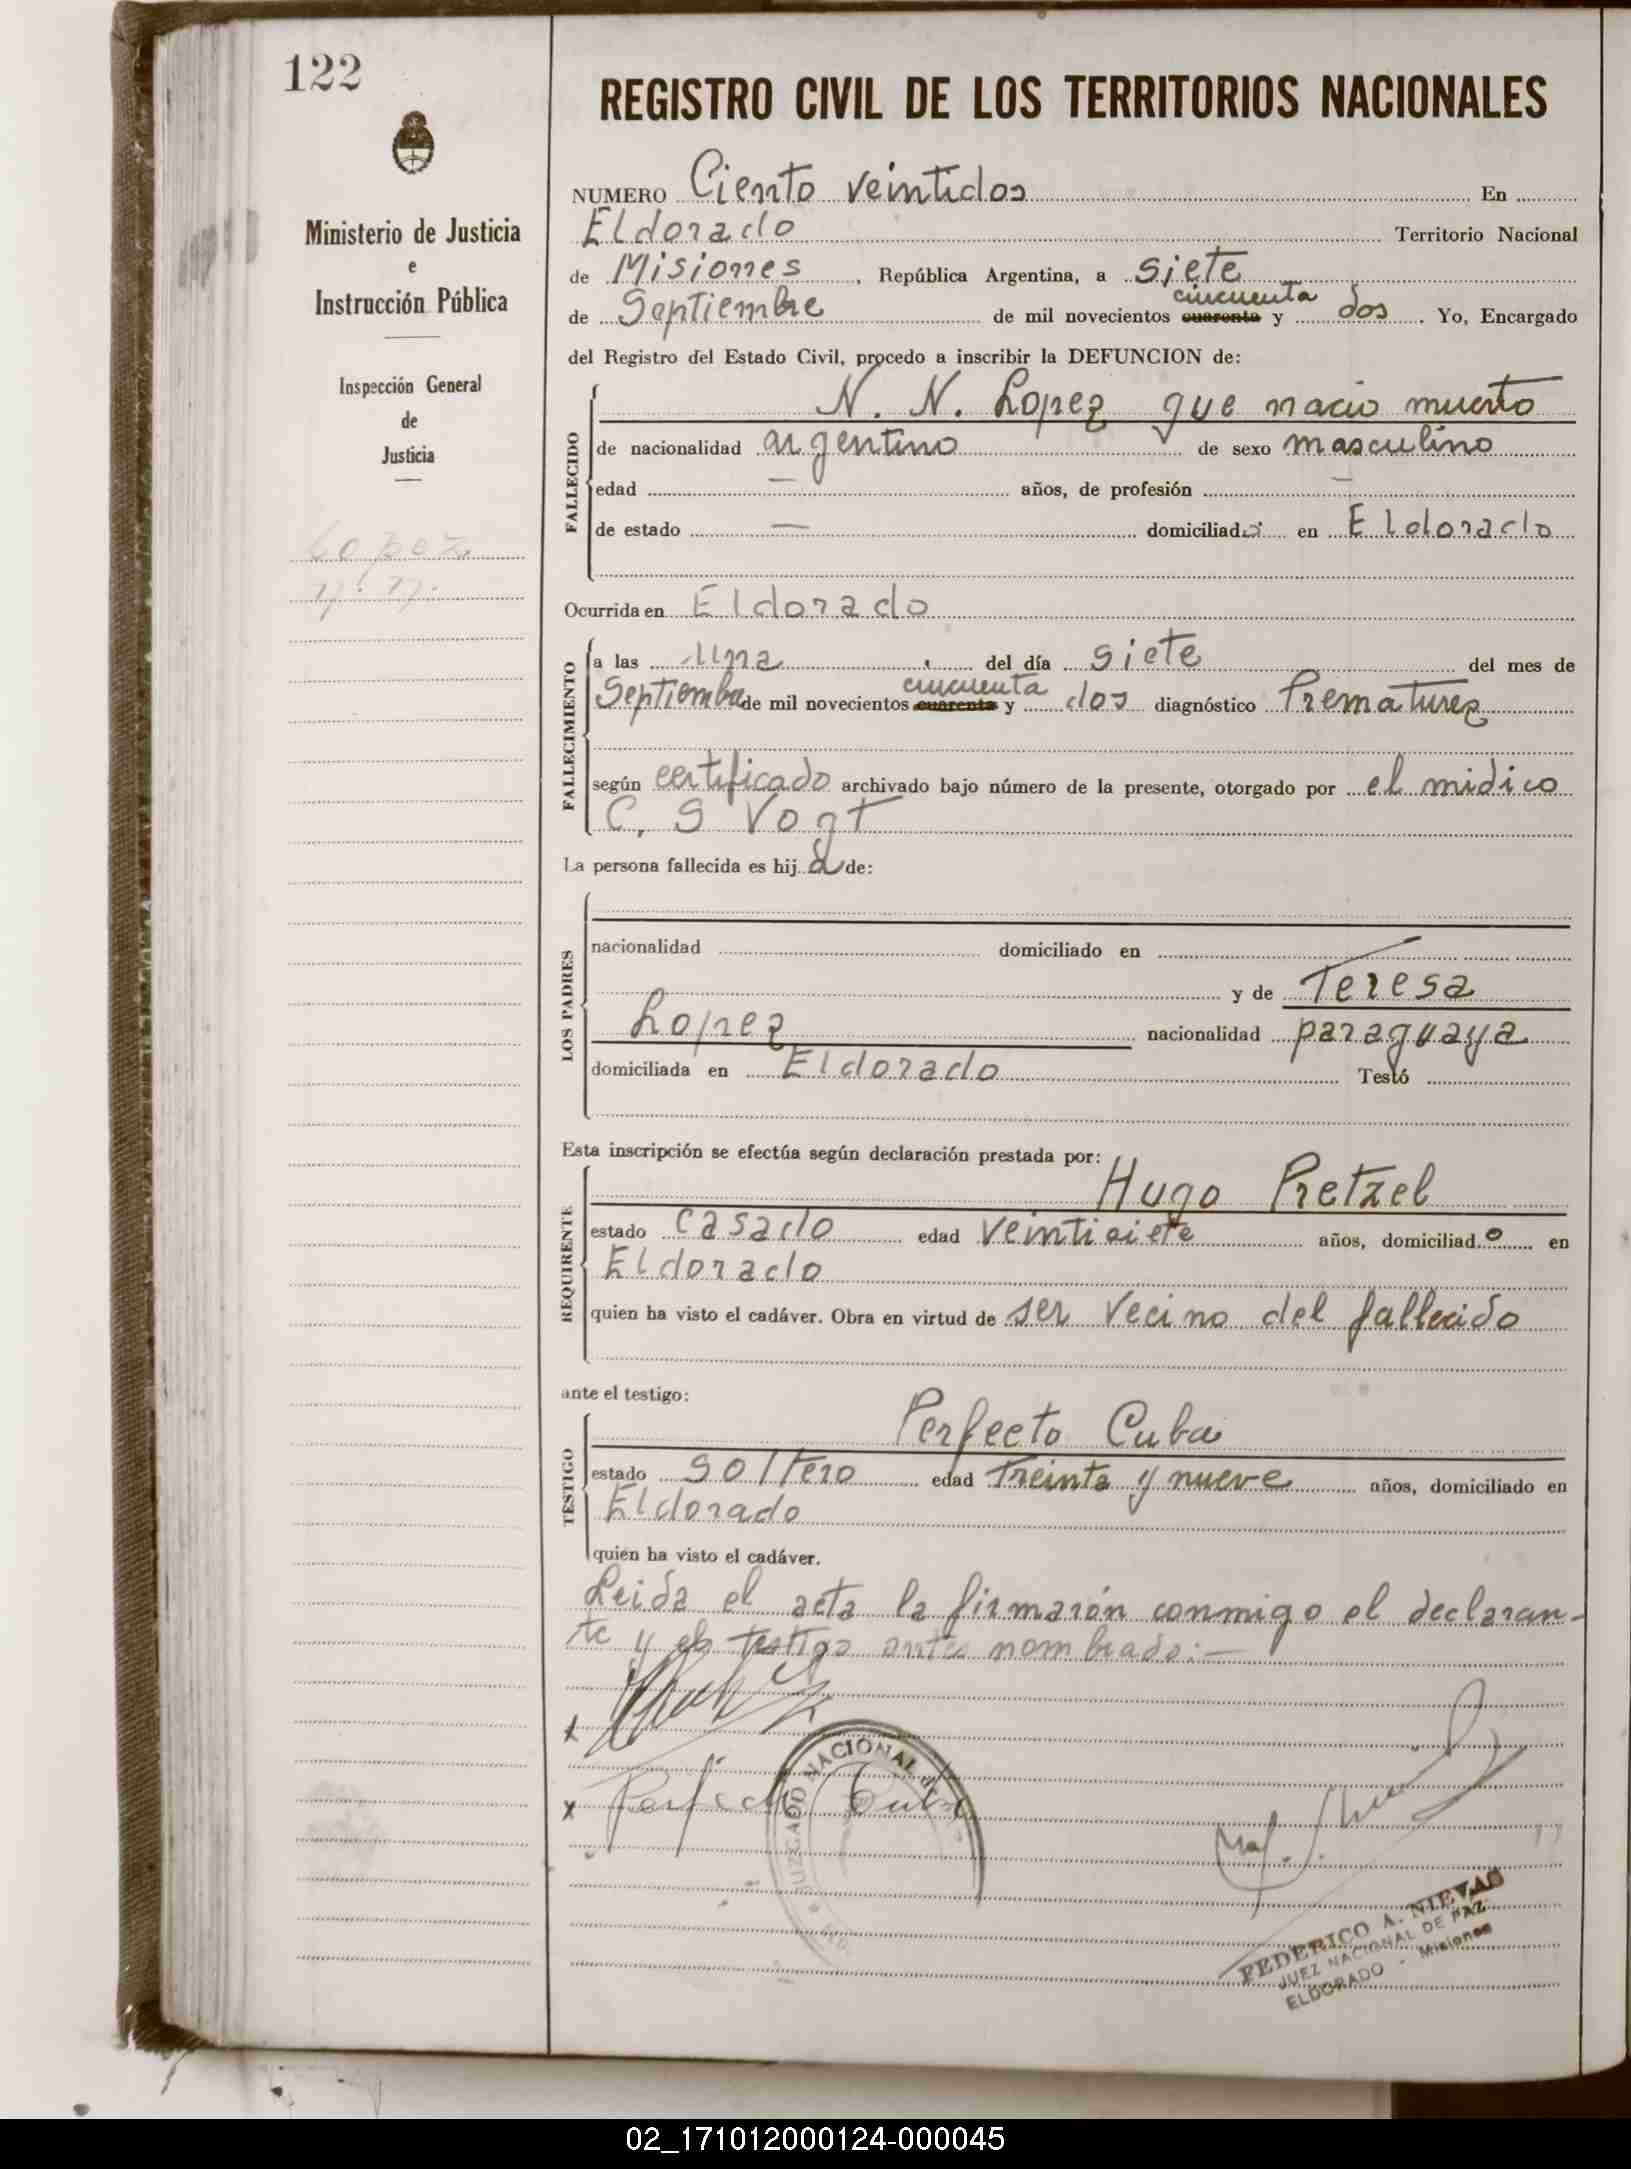 122
Ministerio de Justicia
e
Instrucción Pública
Inspección General
de
Justicia
Lopez
N. N.
REGISTRO CIVIL DE LOS TERRITORIOS NACIONALES
NUMERO Ciento veintidos En
Eldorado Territorio Nacional
de Misiones, República Argentina, a siete
cincuenta
de Septiembre de mil novecientos cuarenta y dos. Yo, Encargado
del Registro del Estado Civil, procedo a inscribir la DEFUNCION de:
FALLECIDO
N. N. Lopez que nacio muerto
de nacionalidad argentino de sexo masculino
edad — años, de profesión —
de estado — domiciliado en Eldorado
Ocurrida en Eldorado
FALLECIMIENTO
a las una del día siete del mes de
cincuenta
Septiembre de mil novecientos cuarenta y dos diagnóstico Prematurez
según certificado archivado bajo número de la presente, otorgado por el midico
C. S Vogt
La persona fallecida es hijo de:
LOS PADRES
nacionalidad domiciliado en
y de Teresa
Lopez nacionalidad paraguaya
domiciliada en Eldorado Testó
Esta inscripción se efectúa según declaración prestada por:
REQUIRENTE
Hugo Pretzel
estado casado edad veintisiete años, domiciliado en
Eldorado
quien ha visto el cadáver. Obra en virtud de ser vecino del fallecido
ante el testigo:
TESTIGO
Perfecto Cuba
estado soltero edad treinta y nueve años, domiciliado en
Eldorado
quien ha visto el cadáver.
Leida el acta la firmarón conmigo el declaran-
te y el testigo antes nombrado:—
x
x Perfecto Cuba
JUZGADO NACIONAL
FEDERICO A. NIEVAS
JUEZ NACIONAL DE PAZ
ELDORADO - Misiones
02_171012000124-000045